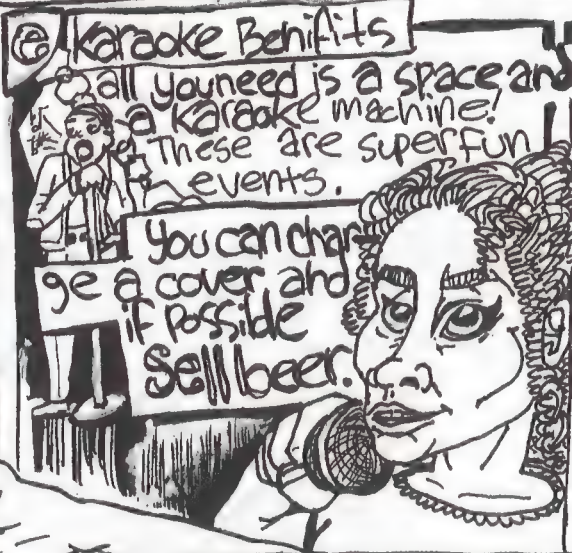 Karaoke Benifits
all you need is a space and
a karaoke machine!
These are superfun
events.
You can char
ge a cover and
if posside
Sell beer.